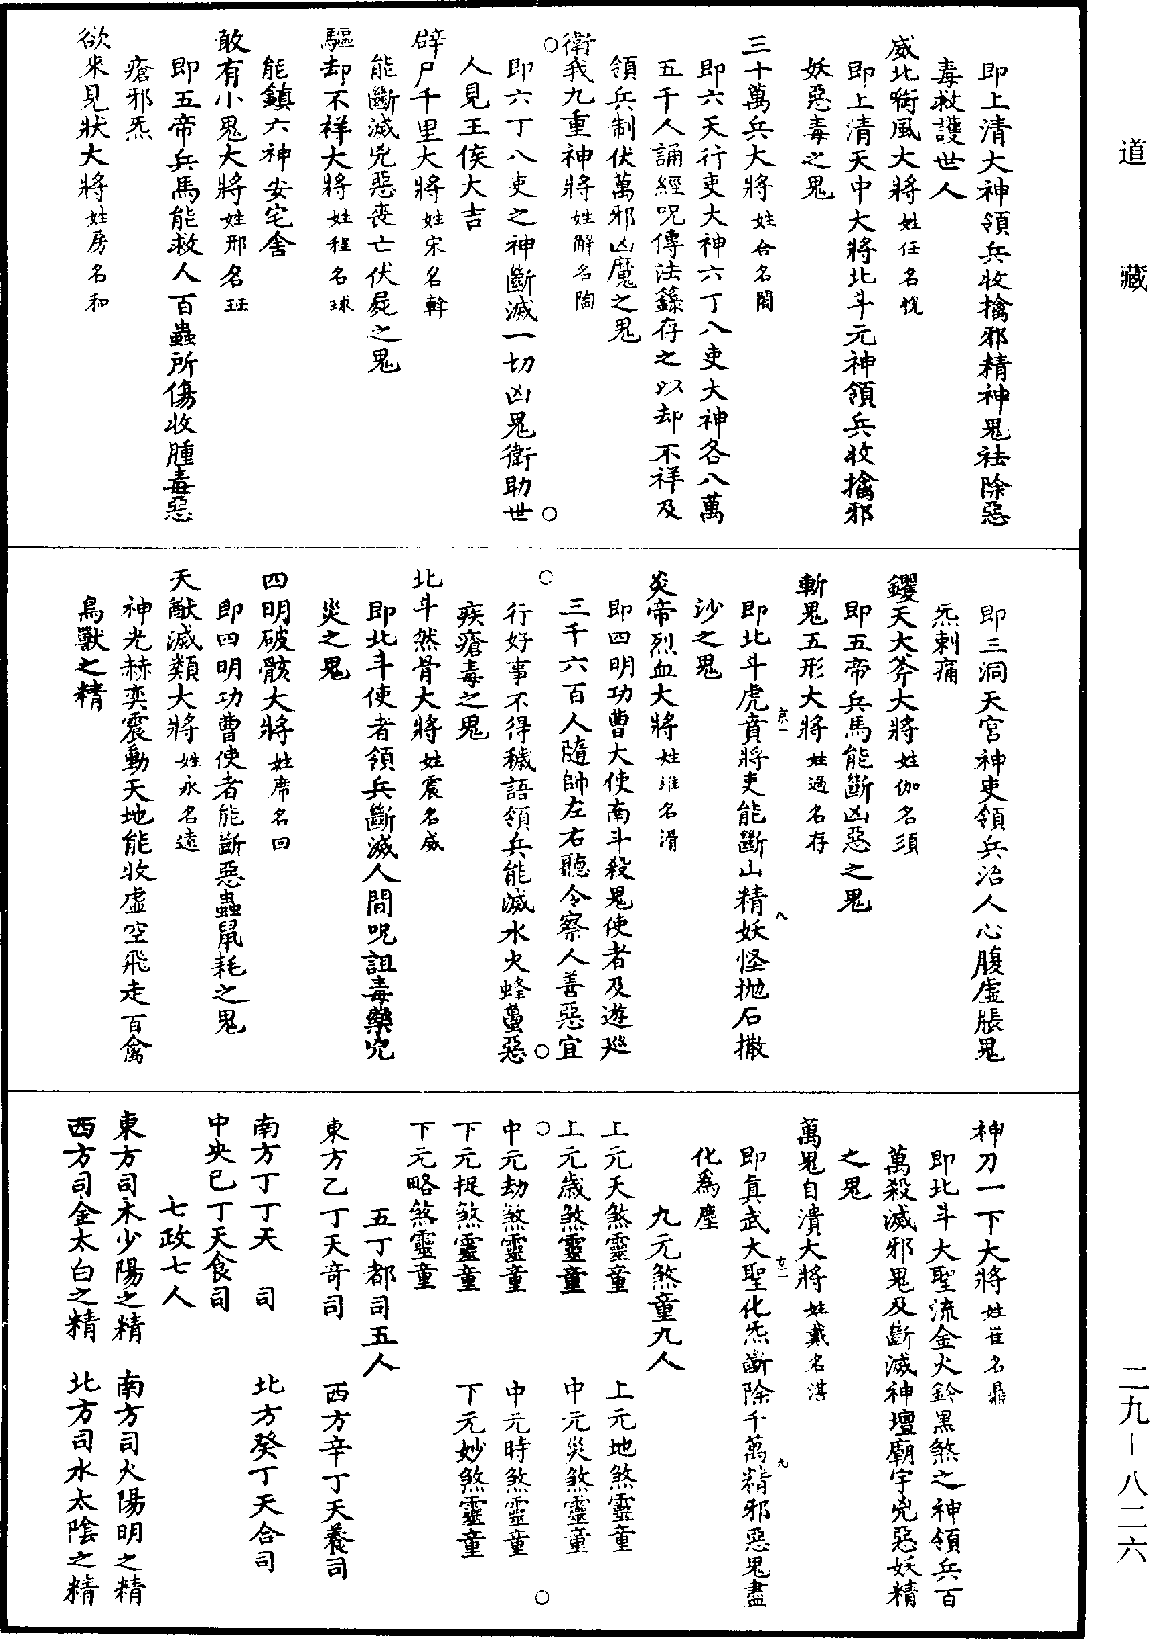 道藏
二九—八二六
即上清大神領兵收擒邪精神鬼祛除惡
毒救護世人
威北衛風大將姓任名悅
即上清天中大將北斗元神領兵收擒邪
妖惡毒之鬼
三十萬兵大將姓合名閣
即六天行吏大神六丁八吏大神各八萬
五千人誦經呪傳法籙存之以却不祥及
領兵制伏萬邪凶魔之鬼
衛我九重神將姓解名陶
即六丁八吏之神斷滅一切凶鬼衛助世
人見王侯大吉
辟尸千里大將姓宋名幹
能斷滅兇惡喪亡伏屍之鬼
驅却不祥大將姓程名球
能鎮六神安宅舍
敢有小鬼大將姓邢名珏
即五帝兵馬能救人百蟲所傷收腫毒惡
瘡邪炁
欲來見狀大將姓房名和
即三洞天宮神吏領兵治人心腹虛脹鬼
炁刺痛
钁天大斧大將姓伽名須
即五帝兵馬能斷凶惡之鬼
斬鬼五形大將姓過名存
即北斗虎賁將吏能斷山精妖怪拋石撒
沙之鬼
炎帝烈血大將姓淮名滑
即四明功曹大使南斗殺鬼使者及遊巡
三千六百人隨帥左右聽令察人善惡宜
行好事不得穢語領兵能滅水火蜂蠆惡
疾瘡毒之鬼
北斗然骨大將姓震名威
即北斗使者領兵斷滅人間呪詛毒藥宄
炎之鬼
四明破骸大將姓席名回
即四明功曹使者能斷惡蟲鼠耗之鬼
天猷滅類大將姓永名遠
神光赫奕震動天地能收虛空飛走百禽
鳥獸之精
神刀一下大將姓崔名鼎
即北斗大聖流金火鈴黑煞之神領兵百
萬殺滅邪鬼及斷滅神壇廟宇兇惡妖精
之鬼
萬鬼自潰大將姓戴名湛
即真武大聖化炁斷除千萬精邪惡鬼盡
化為塵
九元煞童九人
上元天煞靈童　上元地煞靈童
上元歲煞靈童　中元災煞靈童
中元劫煞靈童　中元時煞靈童
下元捉煞靈童　下元妙煞靈童
下元略煞靈童
五丁都司五人
東方乙丁天奇司　西方辛丁天養司
南方丁丁天　司　北方癸丁天合司
中央已丁天食司
七政七人
東方司木少陽之精　南方司火陽明之精
西方司金太白之精　北方司水太陰之精